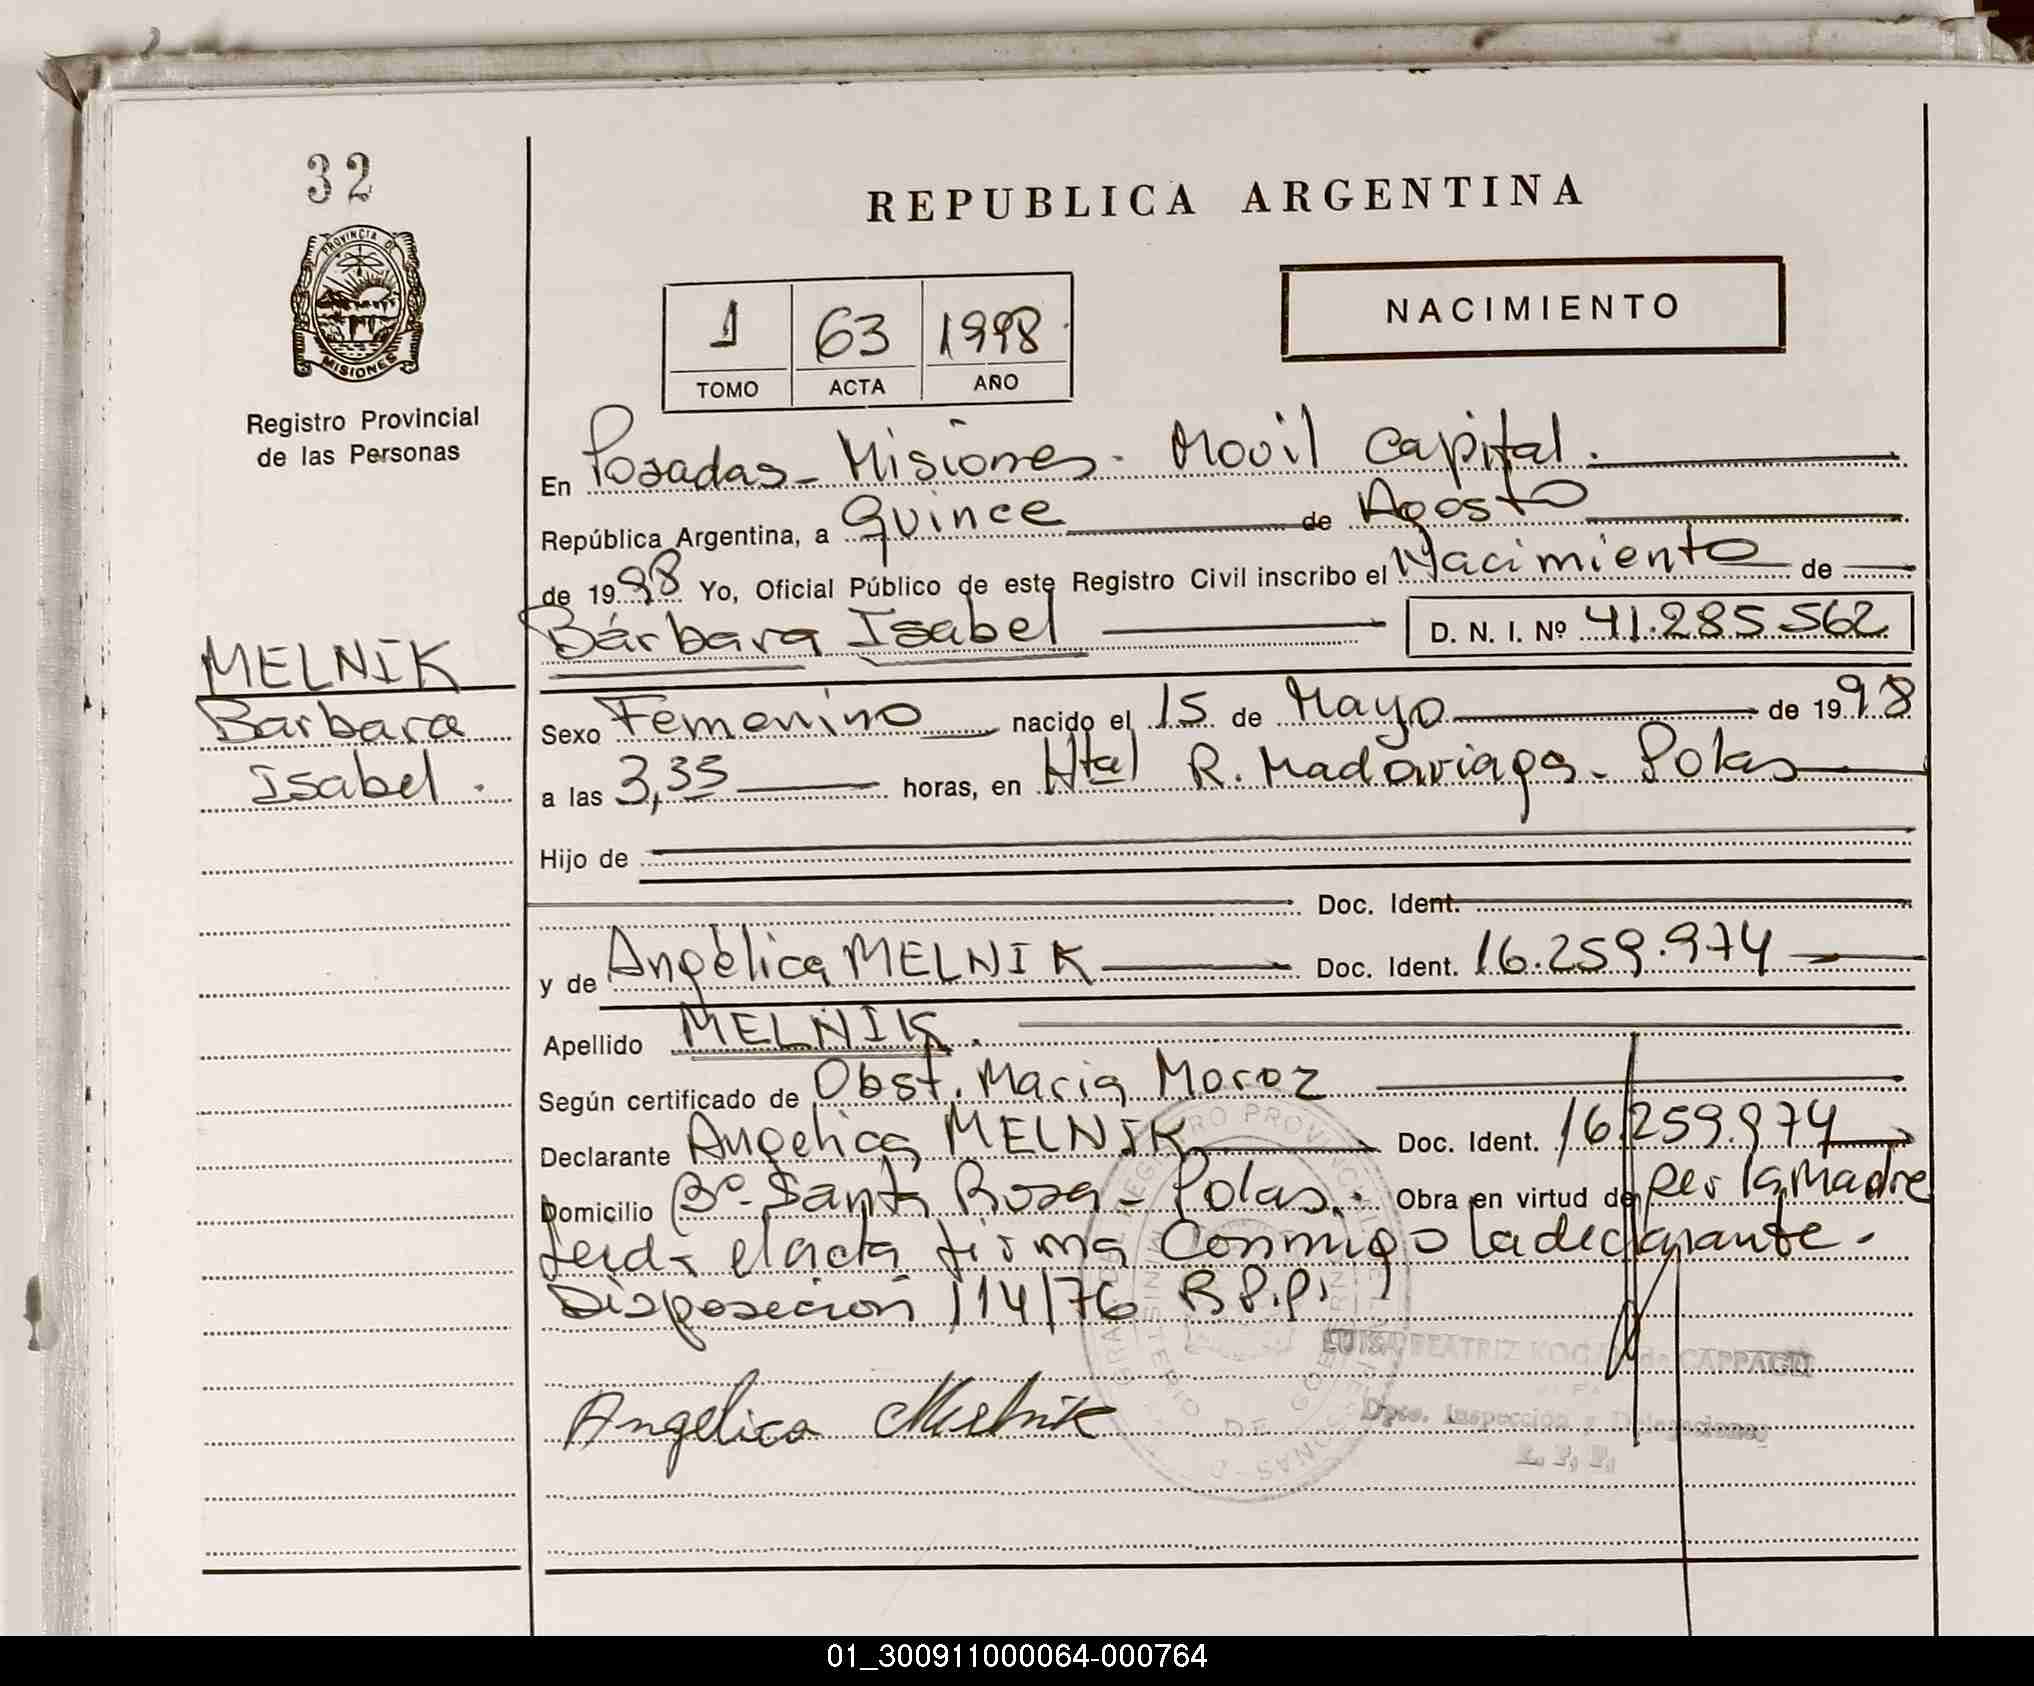 32
PROVINCIA DE
MISIONES
Registro Provincial
de las Personas
MELNIK
Barbara
Isabel.
REPUBLICA ARGENTINA
NACIMIENTO
1 63 1998
TOMO ACTA AÑO
En Posadas - Misiones - Movil Capital.
República Argentina, a Quince de Agosto
de 1998 Yo, Oficial Público de este Registro Civil inscribo el Nacimiento de
Bárbara Isabel D. N. I. Nº 41.285.562
Sexo Femenino nacido el 15 de Mayo de 1998
a las 3,35 horas, en Htal R. Madariaga - Pdas
Hijo de
Doc. Ident.
y de Angélica MELNIK Doc. Ident. 16.259.974
Apellido MELNIK.
Según certificado de Obst. Maria Moroz
Declarante Angelica MELNIK Doc. Ident. 16.259.974
Domicilio Bº Santa Rosa - Pdas. Obra en virtud de ser la Madre
Leida el acta firma conmigo la declarante.
Disposicion 114/76 R.P.P.
LUISA BEATRIZ
Dpto. Inspección y Delegaciones
R. P. P.
Angelica Melnik
01_300911000064-000764